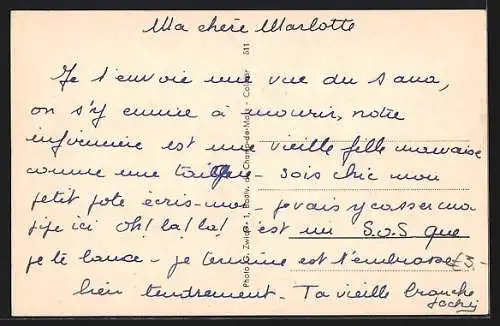 Ma chère Marlotte
Je t'envoie une vue du sana,
on s'y ennuie à mourir, notre
infirmière est une vieille fille mauvaise
comme une - sois chic mon
petit pote écris-moi - je vais y casser ma
pipe ici oh! la! la! c'est un S.O.S que
je te lance - je termine et t'embrasse
bien tendrement - Ta vieille branche
Photo G. Zwickert - 1, Boulv. du Champ-de-Mars - Colmar 511